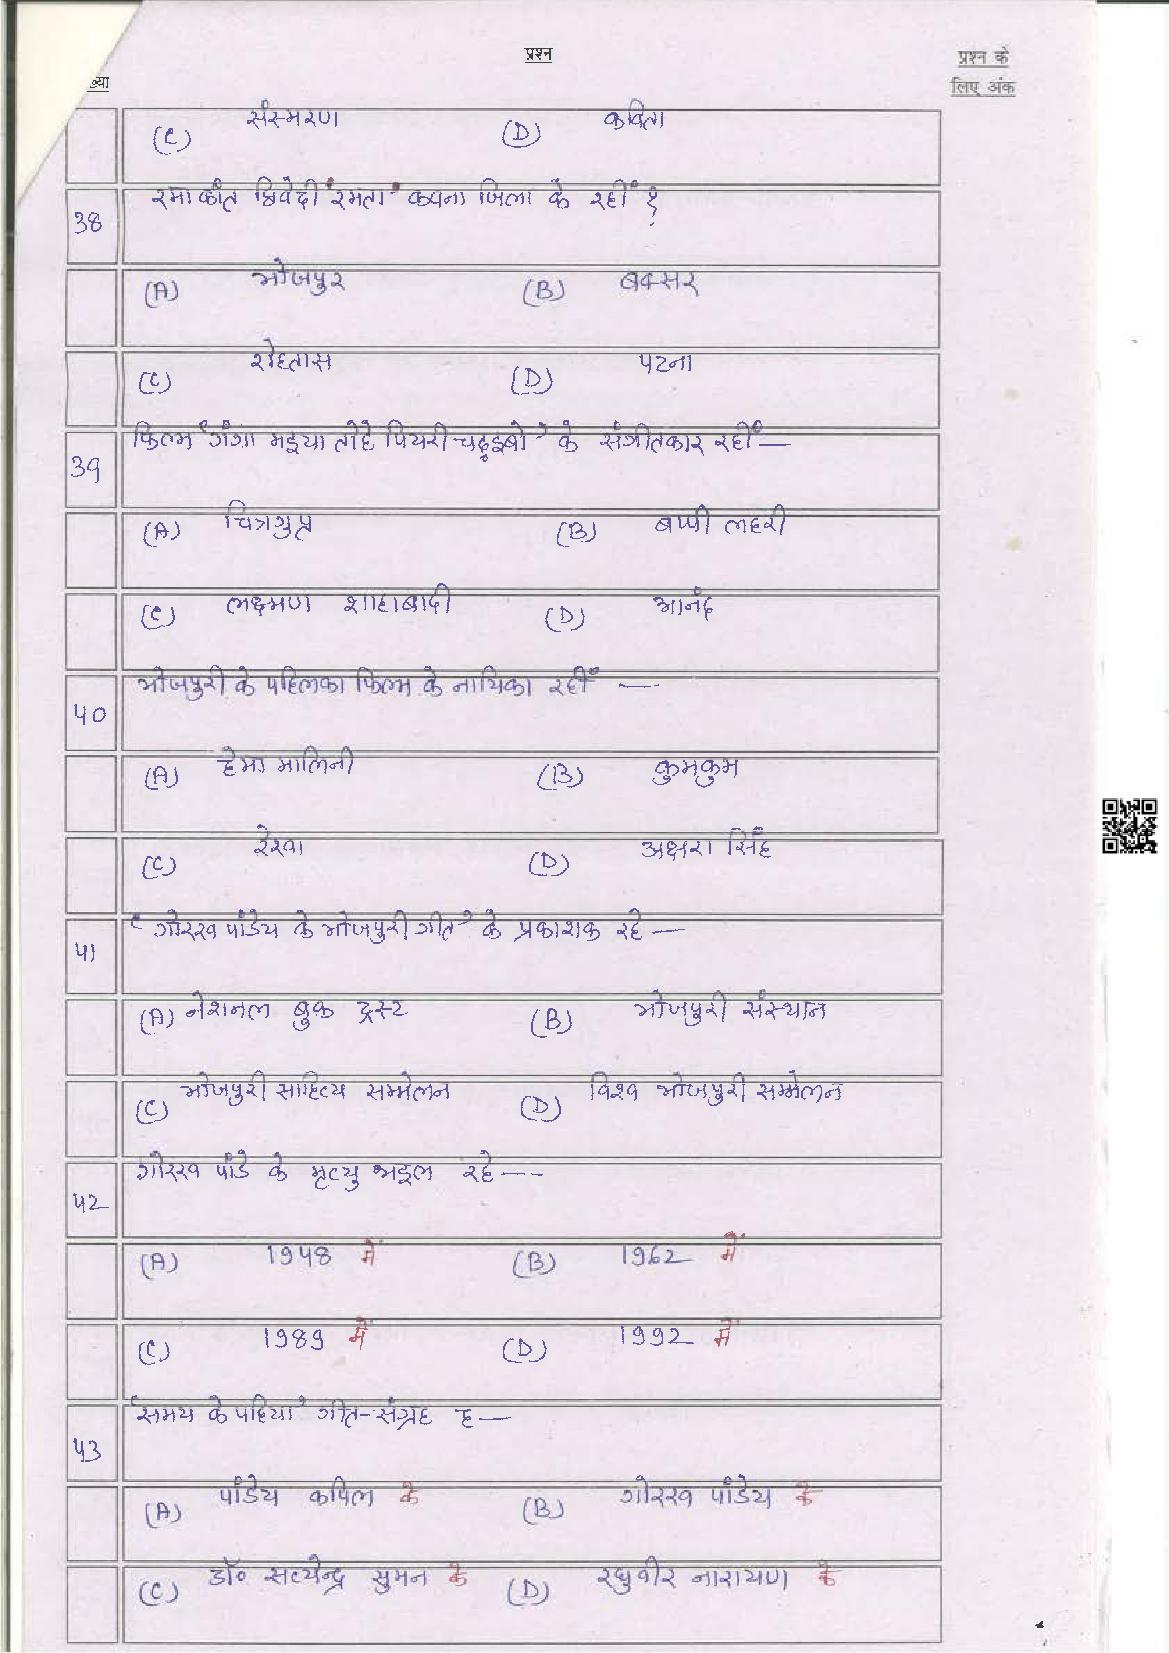 प्रश्न
प्रश्न के
लिए अंक
ख्या
(C) संस्मरण (D) कविता
38 रमाकांत द्विवेदी 'रमता' कवना जिला के रहीं ?
(A) भोजपुर (B) बक्सर
(C) रोहतास (D) पटना
39 फिल्म 'गंगा मइया तोहे पियरी चढ़इबो' के संगीतकार रहीं —
(A) चित्रगुप्त (B) बप्पी लहरी
(C) लक्ष्मण शाहाबादी (D) आनंद
40 भोजपुरी के पहिलका फिल्म के नायिका रहीं —
(A) हेमा मालिनी (B) कुमकुम
(C) रेखा (D) अक्षरा सिंह
41 'गोरख पांडेय के भोजपुरी गीत' के प्रकाशक रहे —
(A) नेशनल बुक ट्रस्ट (B) भोजपुरी संस्थान
(C) भोजपुरी साहित्य सम्मेलन (D) विश्व भोजपुरी सम्मेलन
42 गोरख पांडे के मृत्यु भइल रहे ---
(A) 1948 में (B) 1962 में
(C) 1989 में (D) 1992 में
43 'समय के पहिया' गीत-संग्रह ह —
(A) पांडेय कपिल के (B) गोरख पांडेय के
(C) डॉ० सत्येन्द्र सुमन के (D) रघुवीर नारायण के